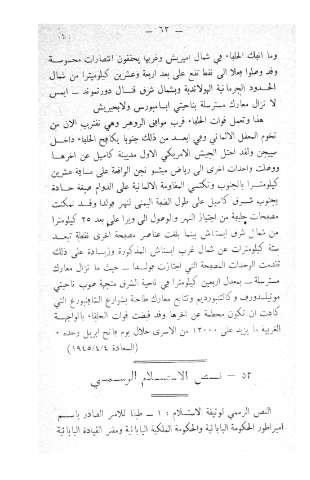 — ٦٢ —
وما انفك الحلفاء في شمال امبريش وغربها يحققون انتصارات محسوسة
وقد وصلوا فعلا الى نقط تقع على بعد اربعة وعشرين كيلومترا من شمال
الحدود الجرمانية الهولاندية وبشمال شرق قنال دورتموند — ايمس
لا تزال معارك مسترسلة بناحيتي ايسامبورس ولابخيريش
هذا وتعمل قوات الحلفاء قرب موافى الروهر وهي تقترب الان من
تخوم المعقل الالماني وفي ابعد من ذلك جنوبا يكافح الحلفاء داخل
سييجن ولقد احتل الجيش الامريكي الاول مدينة كاسيل عن اخرها
ووصلت واحدات اخرى الى رياض ميشو نجن الواقعة على مسافة عشرين
كيلومترا بالجنوب وتكتسي المقاومة الالمانية على الدوام صبغة حادة
بجنوب شرق كاسيل على طول الضفة اليمنى لنهر فولدا وقد تمكنت
مصفحات من اجتياز النهر والوصول الى ويرا على بعد ٢٥ كيلومترا
من شمال شرق ايستاش بينما بلغت عناصر مصفحة اخرى نقطة تبعد
ستة كيلومترات عن شمال غرب ايستاش المذكورة وزيادة على ذلك
تقدمت الوحدات المصفحة التي اجتازت فولدا — حيث ما زال معارك
مسترسلة — بمعدل اربعين كيلومترا في ناحية الشرق متجهة صوب ناحيتي
وتتابع معارك طاحنة بشوارع اشافنبورغ التي
كادت ان تكون محطمة عن اخرها وقد قبضت قوات الحلفاء بالواجهة
الغربية ما يزيد على ١٢٠٠٠ من الاسرى خلال يوم فاتح ابريل وحده •
(السعادة ١٩٤٥/٤/٤)
٥٢ — نص الاستسلام الرسمي
النص الرسمي لوثيقة الاستسلام : ١ — طبقا للامر الصادر باسم
امبراطور الحكومة اليابانية والحكومة الملكية اليابانية ومقر القيادة اليابانية